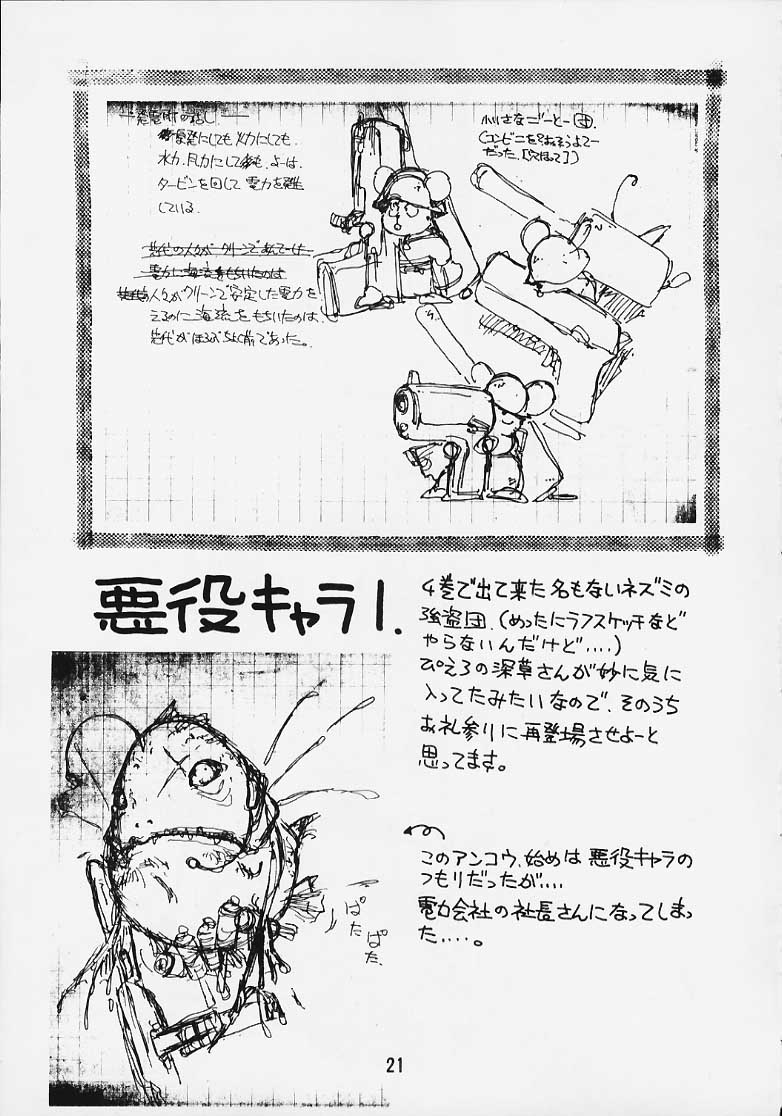 発電所の話し
原発にしても火力にしても、
水力、風力にしても、よーは、
タービンを回して電力を発
している。
人々がクリーンで安定した電力を
えるのに海流をもちいたのは、
先代がほろぶちょく前であった。
小さなごーとー団。
(コンビニをおそうよてー
だった。
悪役キャラ1.
4巻で出て来た名もないネズミの
強盗団.(めったにラフスケッチなど
やらないんだけど....)
ぴえろの深草さんが妙に気に
入ってたみたいなので、そのうち
お礼参りに再登場させよーと
思ってます。
このアンコウ、始めは悪役キャラの
つもりだったが....
電力会社の社長さんになってしまっ
た....。
ぱた
ぱた.
21